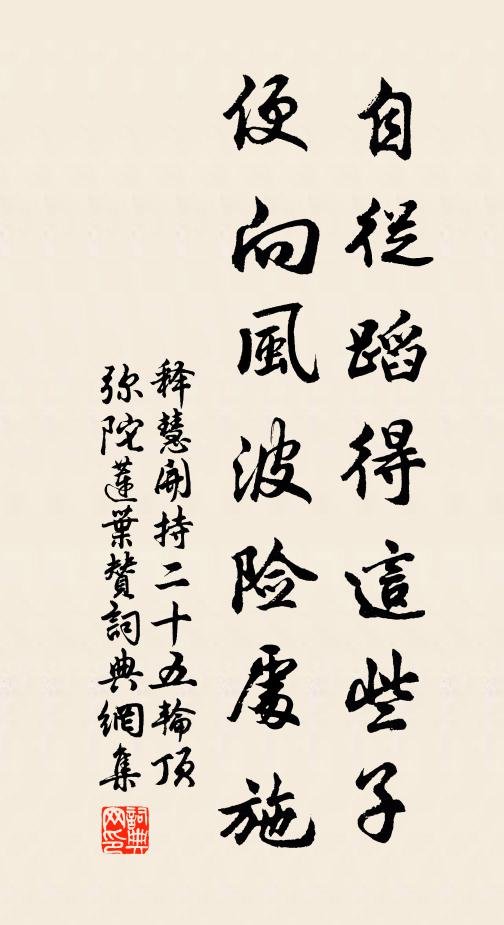 自從蹈得這些子
便向風波險處施
释慧開持二十五輪頂
弥陀蓮葉賛詞典網集
詞典网印